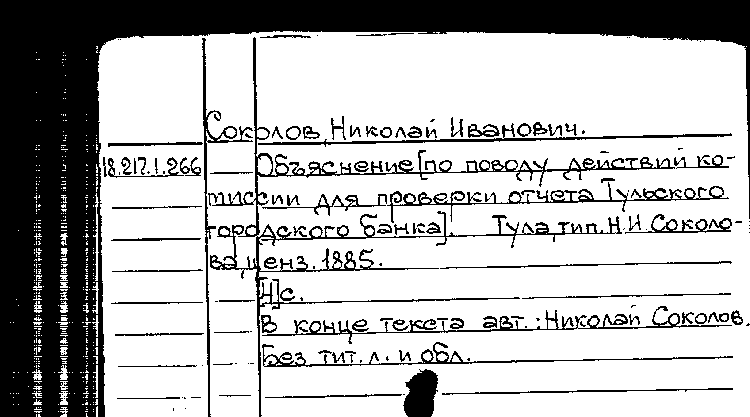 Соколов, Николай Иванович.
18.217.1.266 Объяснение [по поводу действий ко-
миссии для проверки отчета Тульского
городского банка]. Тула, тип. Н.И. Соколо-
ва, ценз. 1885.
[4]с.
В конце текста авт.: Николай Соколов.
Без тит. л. и обл.